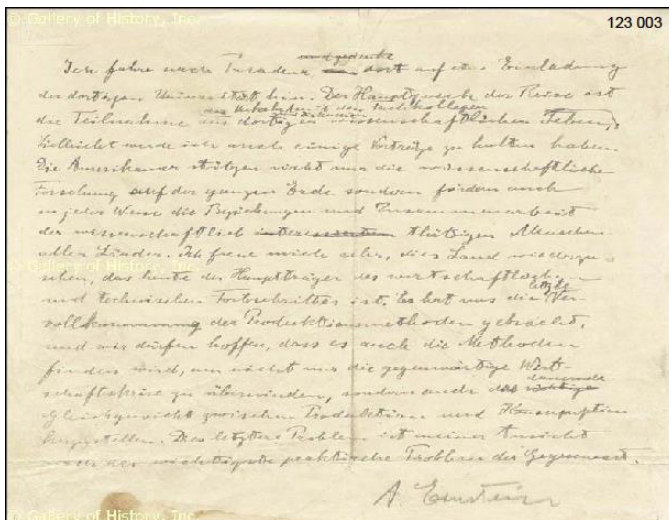 © Gallery of History, Inc.
123 003
und gedenke
Ich fahre nach Pasadena dort auf eine Einladung
der dortigen Universität hin. Der Hauptzweck der Reise ist
den Fachkollegen
die Teilnahme am dortigen wissenschaftlichen Leben,
Vielleicht werde ich auch einige Vorträge zu halten haben
Die Amerikaner stützen nicht nur die wissenschaftliche
Forschung auf der ganzen Erde sondern fördern auch
in jeder Weise die Beziehungen und Zusammenarbeit
der wissenschaftlich interessierten thätigen Menschen
aller Länder. Ich freue mich sehr, dies Land wiederzu-
© Gallery of History, Inc.
sehen, das heute der Hauptträger des wirtschaftlichen
und technischen Fortschrittes ist. Es hat uns die letzte Ver-
vollkommnung der Produktionsmethoden gebracht,
und wir dürfen hoffen, dass es auch die Methoden
finden wird, um nicht nur die gegenwärtige Wirt-
schaftskrise zu überwinden, sondern auch das richtige dauernde
Gleichgewicht zwischen Produktion und Konsumption
herzustellen. Dies letztere Problem ist meiner Ansicht
nach das wichtigste praktische Problem der Gegenwart.
A. Einstein
© Gallery of History, Inc.